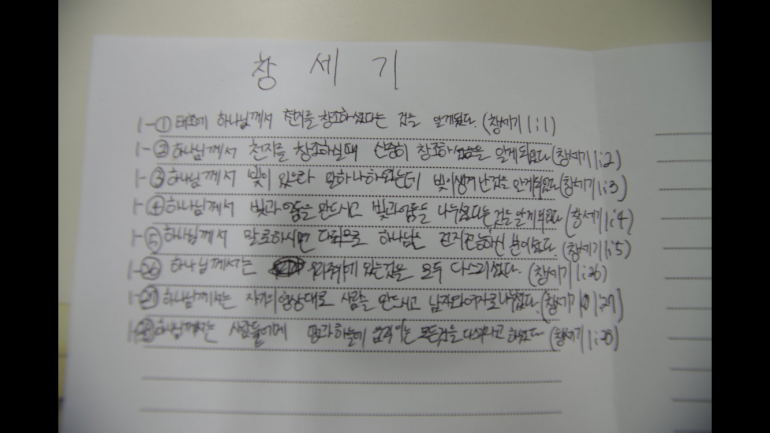 창 세 기
1-① 태초에 하나님께서 천지를 창조하셨다는 것을 알게됬다. (창세기 1:1)
1-② 하나님께서 천지를 창조하실때 신중히 창조하셨음을 알게되었다 (창세기 1:2)
1-③ 하나님께서 빛이 있으라 말하나하였는데 빛이생겨난것을 알게되었다 (창세기 1:3)
1-④ 하나님께서 빛과어둠을 만드시고 빛과어둠을 나누셨다는 것을 알게되었다 (창세기 1:4)
1-⑤ 하나님께서 말로하시면 다되므로 하나님은 전지전능하신 분이셨다. (창세기 1:5)
1-㉖ 하나님께서는 있는것을 모두 다스리셨다. (창세기 1:26)
1-㉗ 하나님께서는 자기의형상대로 사람을 만드시고 남자와여자로나누셨다. (창세기 1:27)
하나님께서는 사람들에게 땅과하늘에 모든것을 다스리라고 하셨다 (창세기 1:28)